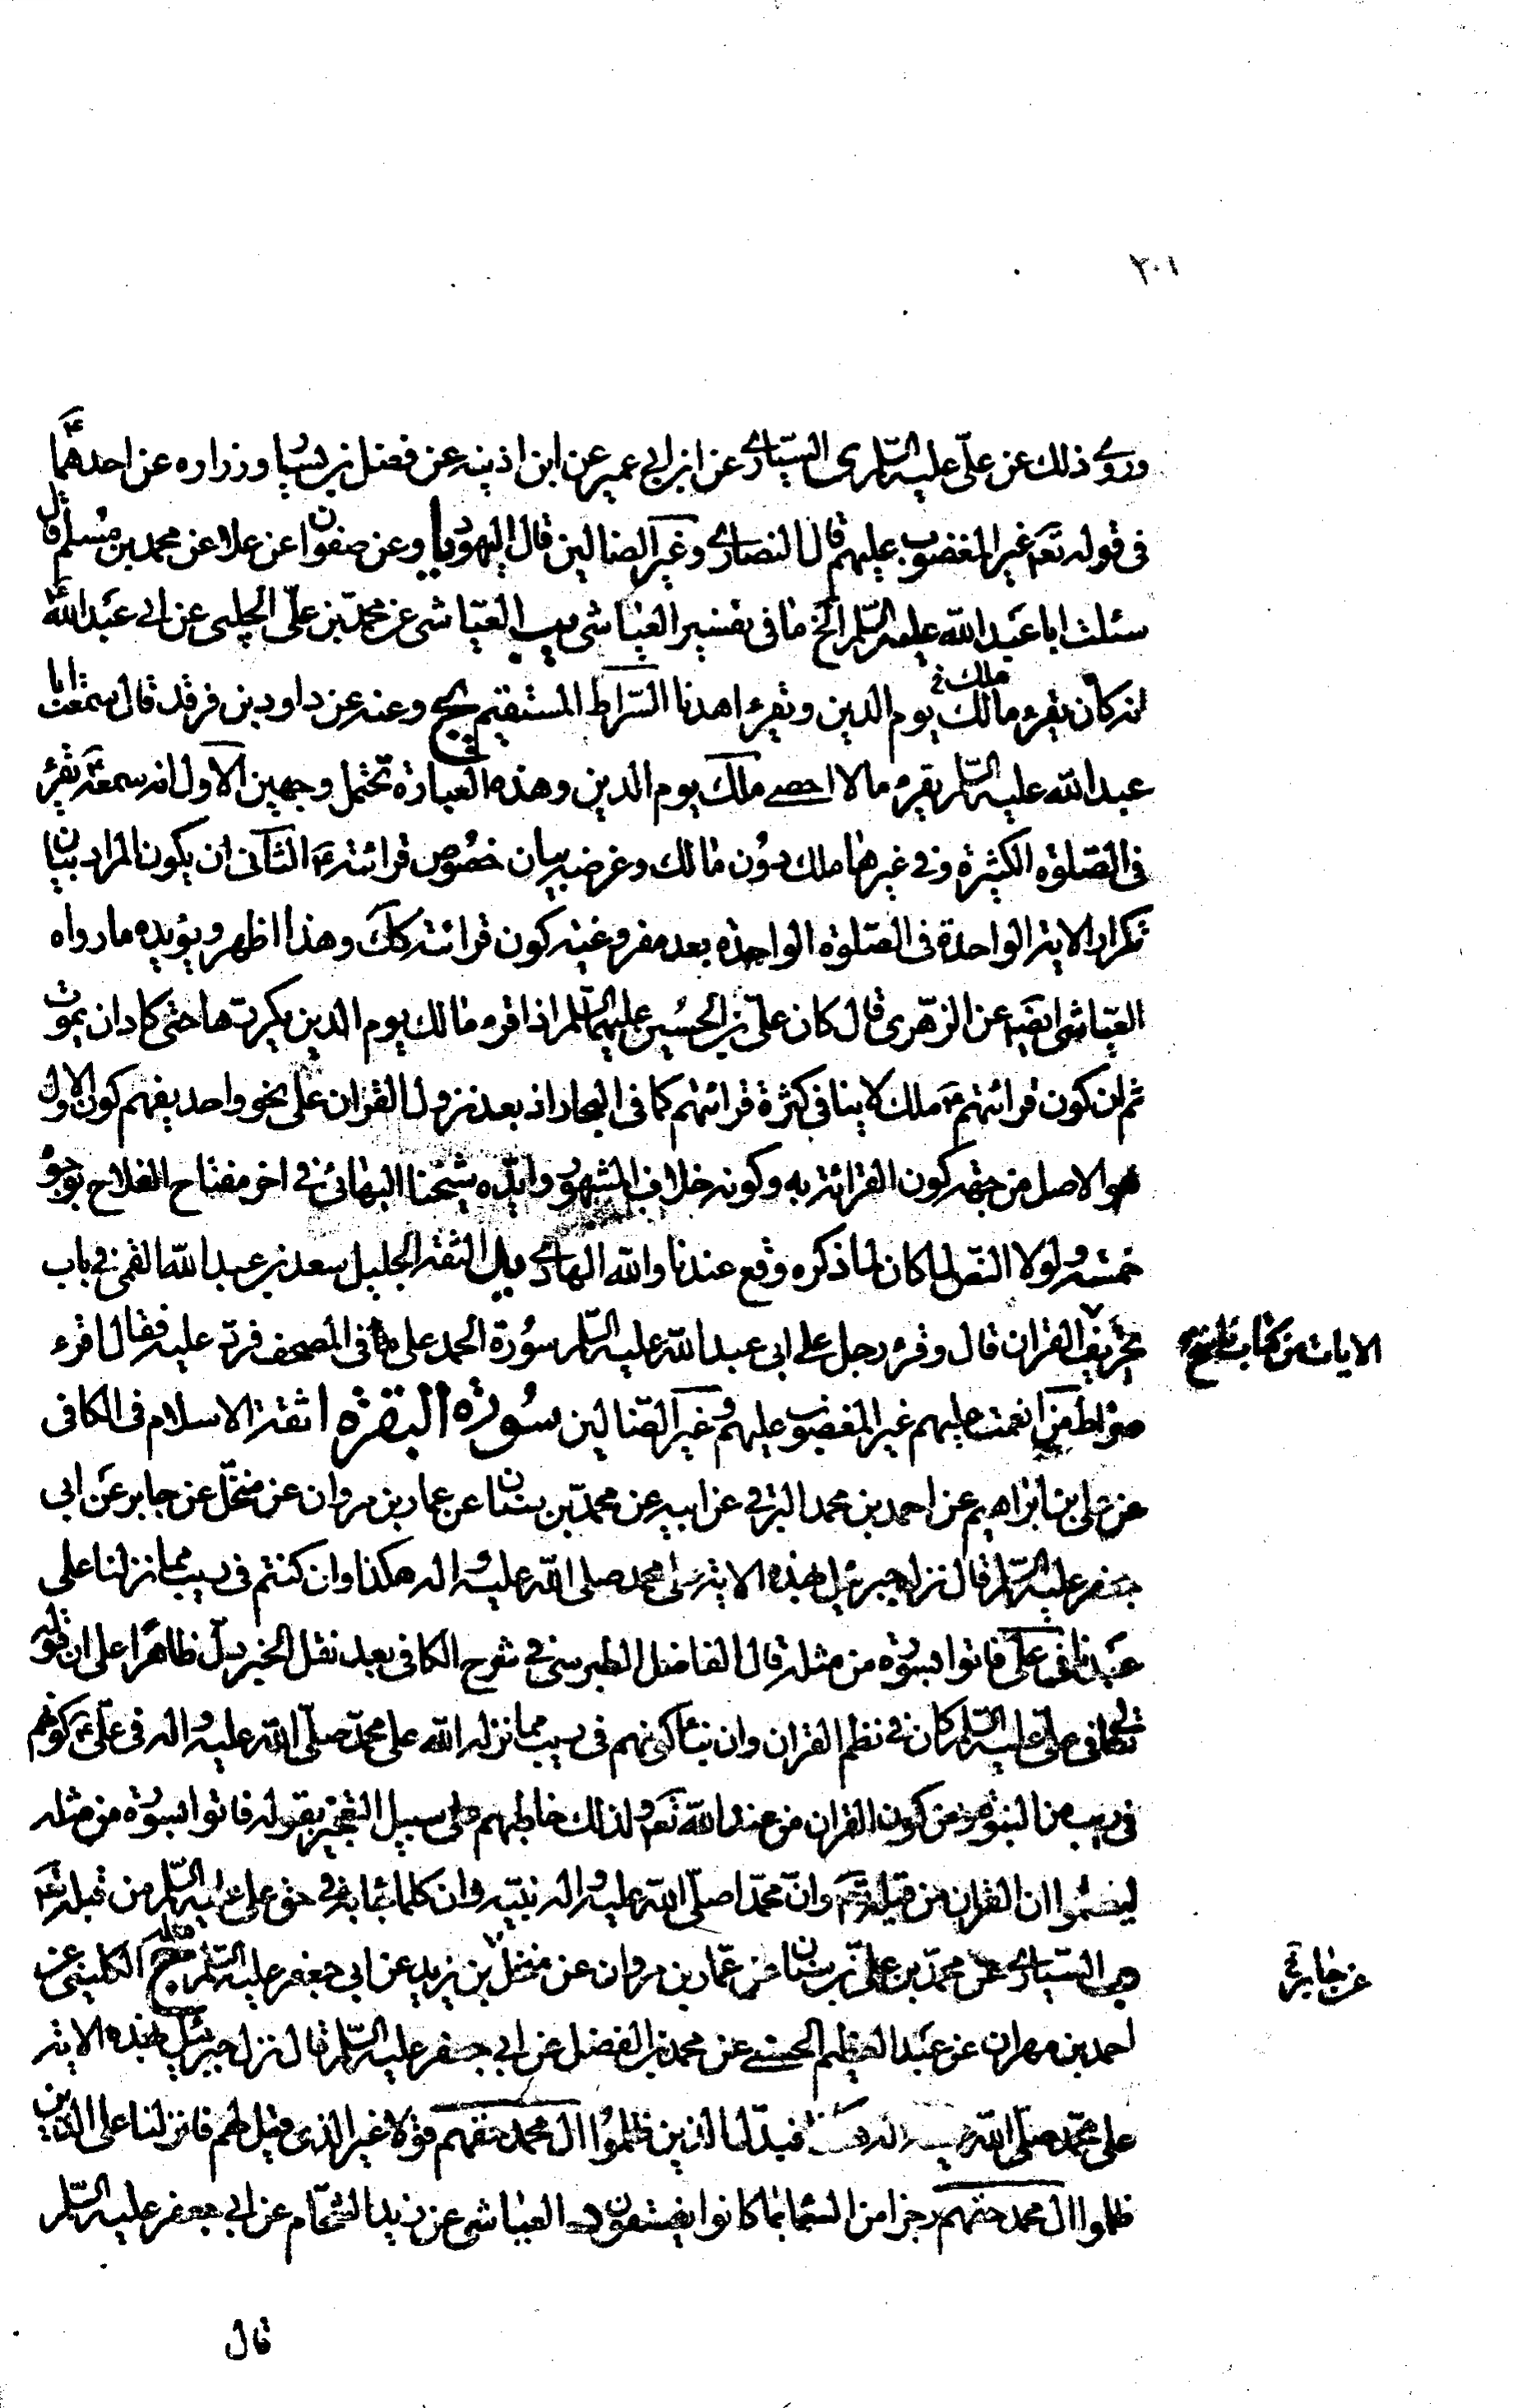 ٢٠١
وروى ذلك عن علي عليه السلم ى السياري عن ابن ابي عمير عن ابن اذينه عن فضل بن يسار وزراره عن احدهما ع
فى قوله تعم غير المغضوب عليهم قال النصارى وغير الضالين قال اليهود يا وعن صفوان عن علا عن محمد بن مسلم قال
سئلت ابا عبد الله عليه السلم الخ ما فى تفسير العياشى يب العياشى عن محمد بن على الحلبى عن ابى عبد الله ع
انه كان يقرء مالك يوم الدين ويقرء اهدنا السراط المستقيم يج وفى وعنه عن داود بن فرقد قال سمعت ابا
ملك خ
عبد الله عليه السلم يقرء مالا احصى ملك يوم الدين وهذه العبارة تحتمل وجهين الاول انه سمعه ع يقرء
فى الصلوة الكثيرة وفى غيرها ملك دون مالك وغرضه بيان خصوص قرائته ع الثانى ان يكون المراد بيان
تكرار الاية الواحدة فى الصلوة الواحدة بعد مفروغية كون قرائته كك وهذا اظهر ويؤيده ما رواه
العياشى ايضا عن الزهرى قال كان على بن الحسين عليهما السلم اذا قرء مالك يوم الدين يكررها حتى كاد ان يموت
ثم ان كون قرائتهم ع ملك لا ينافى كثرة قرائتهم كما فى البحار اذ بعد نزول القران على نحو واحد يفهم كون الاول
هو الاصل من جهة كون القرائة به وكونه خلاف المشهور وايده شيخنا البهائى فى اخر مفتاح الفلاح بوجوه
خمسة ولولا النص لما كان لما ذكره وقع عندنا والله الهادى يد الثقة الجليل سعد بن عبد الله القمى فى باب
تحريف القران قال وقرء رجل على ابى عبد الله عليه السلم سورة الحمد على ما فى المصحف فرد عليه فقال اقرء
الايات من كتاب
صراط من انعمت عليهم غير المغضوب عليهم وغير الضالين سورة البقرة ا ثقة الاسلام فى الكافى
عن على بن ابراهيم عن احمد بن محمد البرقى عن ابيه عن محمد بن سنان عن عمار بن مروان عن منخل عن جابر عن ابى
جعفر عليه السلم قال نزل جبرئيل بهذه الاية على محمد صلى الله عليه واله هكذا وان كنتم فى ريب مما نزلنا على
عبدنا فى على فاتوا بسورة من مثله قال الفاضل الطبرسى فى شرح الكافى بعد نقل الخبر دل ظاهرا على ان قوله
تعالى فى على عليه السلم كان فى نظم القران وان شاكهم فى ريب مما نزله الله على محمد صلى الله عليه واله فى على ع كونهم
فى ريب من النبوة ومن كون القران من عند الله تعم ولذلك خاطبهم على سبيل التعجيز بقوله فاتوا بسورة من مثله
ليعلموا ان القران من قبله تعم وان محمدا صلى الله عليه واله نبيه وان كلما جاء به فى حق على عليه السلم من قبله تعم
ب السيارى عن محمد بن على بن سنان عن عمار بن مروان عن منخل بن زيد عن ابى جعفر عليه السلم مثله ج الكلينى عن
عن جابر ق
احمد بن مهران عن عبد العظيم الحسنى عن محمد بن الفضل عن ابى جعفر عليه السلم قال نزل جبرئيل بهذه الاية
على محمد صلى الله عليه واله هكذا فبدل الذين ظلموا ال محمد حقهم قولا غير الذى قيل لهم فانزلنا على الذين
ظلموا ال محمد حقهم رجزا من السماء بما كانوا يفسقون د العياشى عن زيد الشحام عن ابى جعفر عليه السلم
قال